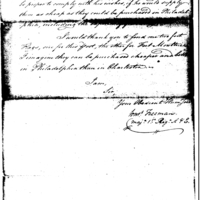 be proper to comply with his wishes, if he could supply
them as cheap as they could be purchased in Philadel-
phia, including the
I would thank you to send me two feet
Flags, one for this post, the other for Fort Moultrie
I imagine they can be purchased cheaper and
in Philadelphia than in Charleston.
I am,
Sir,
Your Obedient
Const. Freeman
Majr. 1st Regt. A & E.